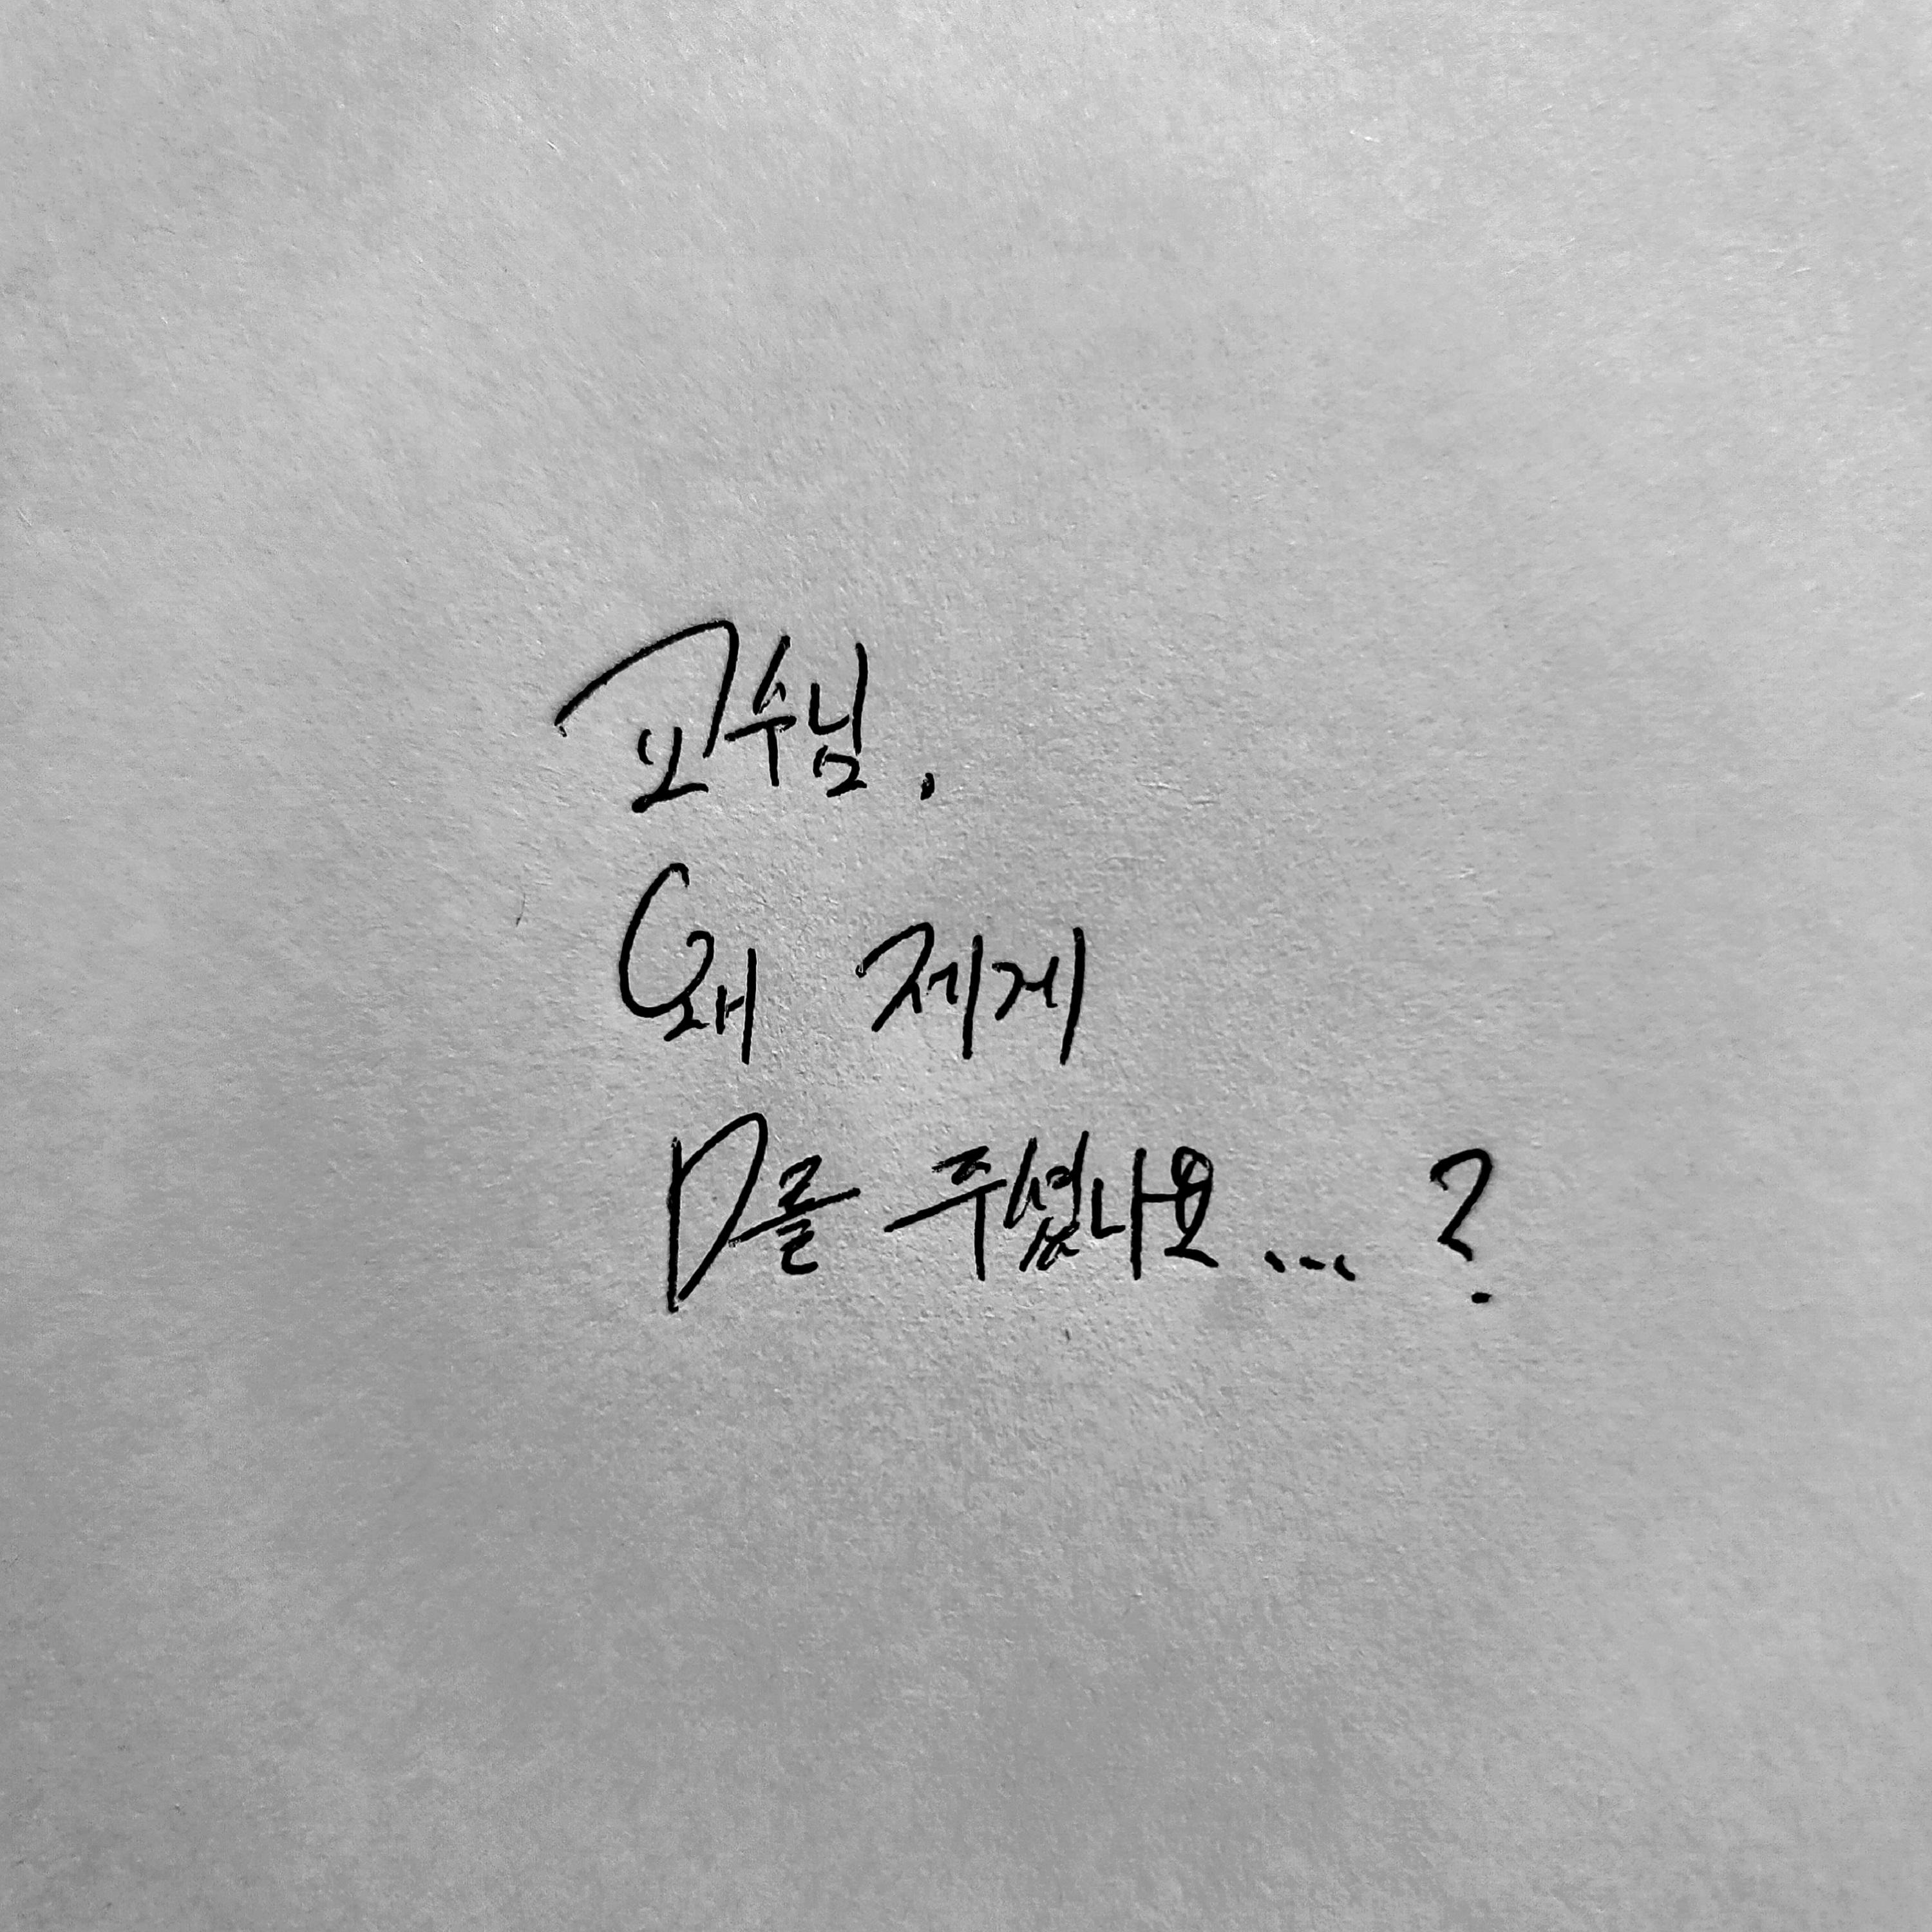 교수님.
왜 제게
D를 주셨나요...?